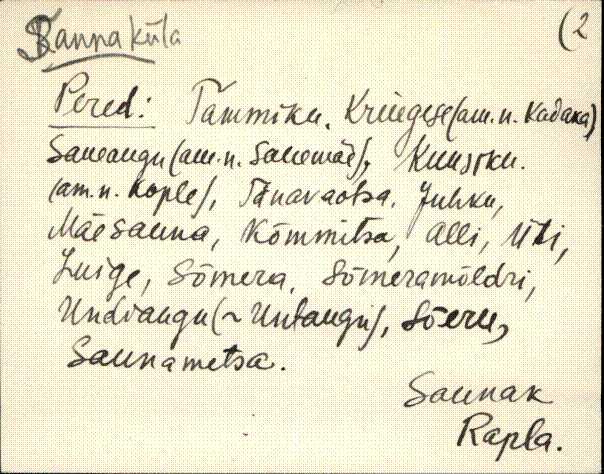 Banna küla (2
Pered: Tammiku, Kriiegese (am.n. Kadaka)
Saueaugu (am.n. Sauemäe), Kuusiku
(am.n. Kople), Tänavaotsa, Juhku,
Mäesauna, Kõmmitsa, Alli, Üti,
Luige, Sõmera, Sõmeramöldri,
Undiaugu (~ Untaugu), Sõeru,
Saunametsa.
Saunak
Rapla.